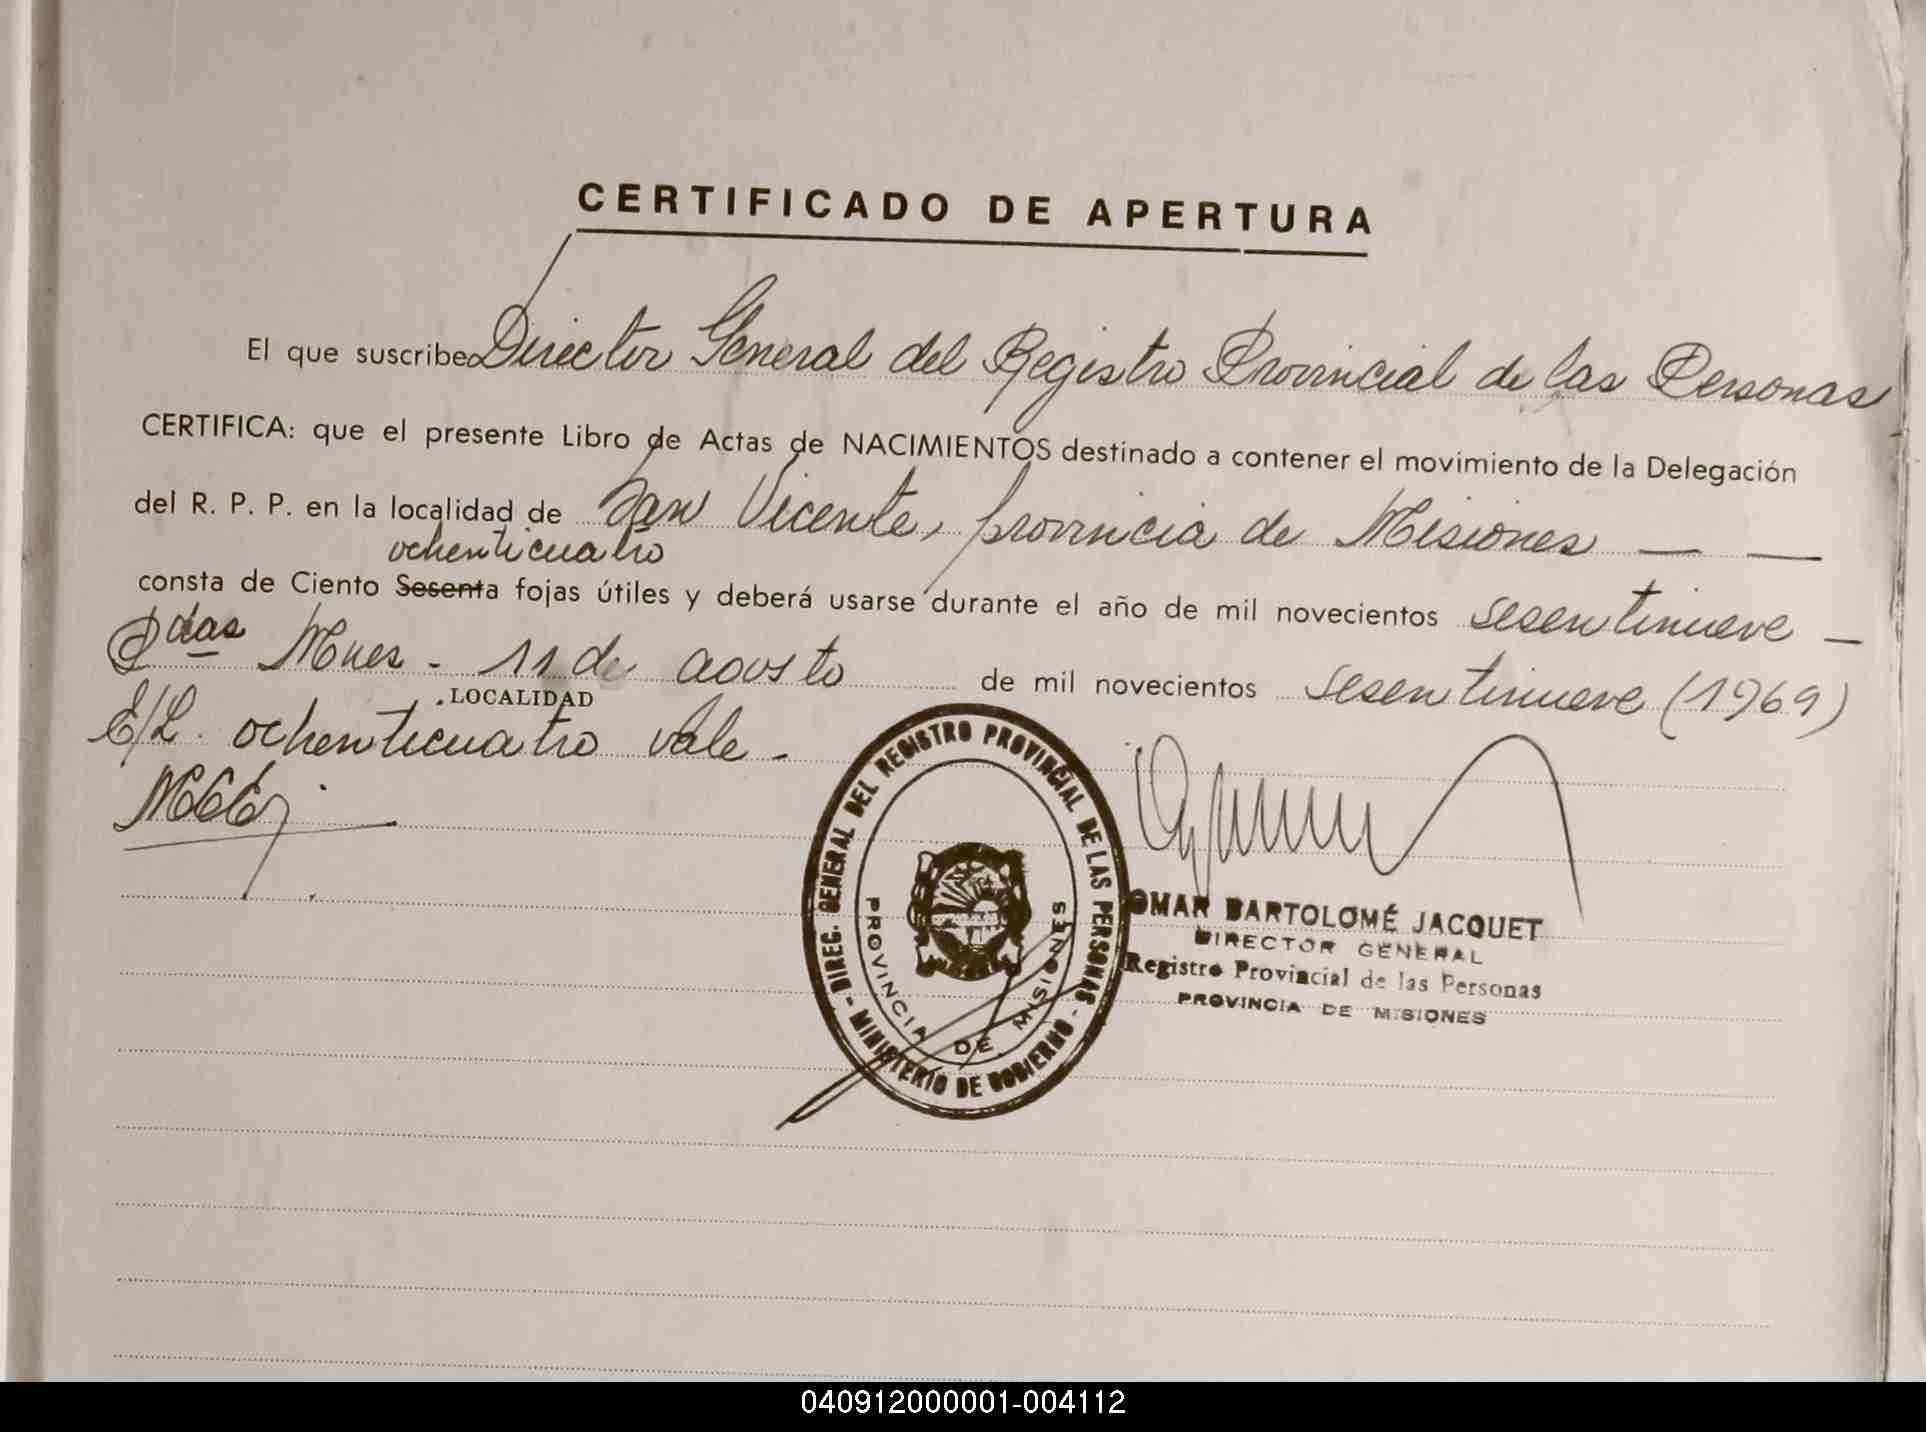 CERTIFICADO DE APERTURA
El que suscribe Director General del Registro Provincial de las Personas
CERTIFICA: que el presente Libro de Actas de NACIMIENTOS destinado a contener el movimiento de la Delegación
del R. P. P. en la localidad de San Vicente, provincia de Misiones — —
ochenticuatro
consta de Ciento Sesenta fojas útiles y deberá usarse durante el año de mil novecientos sesentinueve —
Pdas Mnes. - 11 de agosto de mil novecientos sesentinueve (1969)
LOCALIDAD
E/L. ochenticuatro vale -
DIREC. GENERAL DEL REGISTRO PROVINCIAL DE LAS PERSONAS - MINISTERIO DE GOBIERNO -
PROVINCIA DE MISIONES
OMAR BARTOLOMÉ JACQUET
DIRECTOR GENERAL
Registro Provincial de las Personas
PROVINCIA DE MISIONES
040912000001-004112